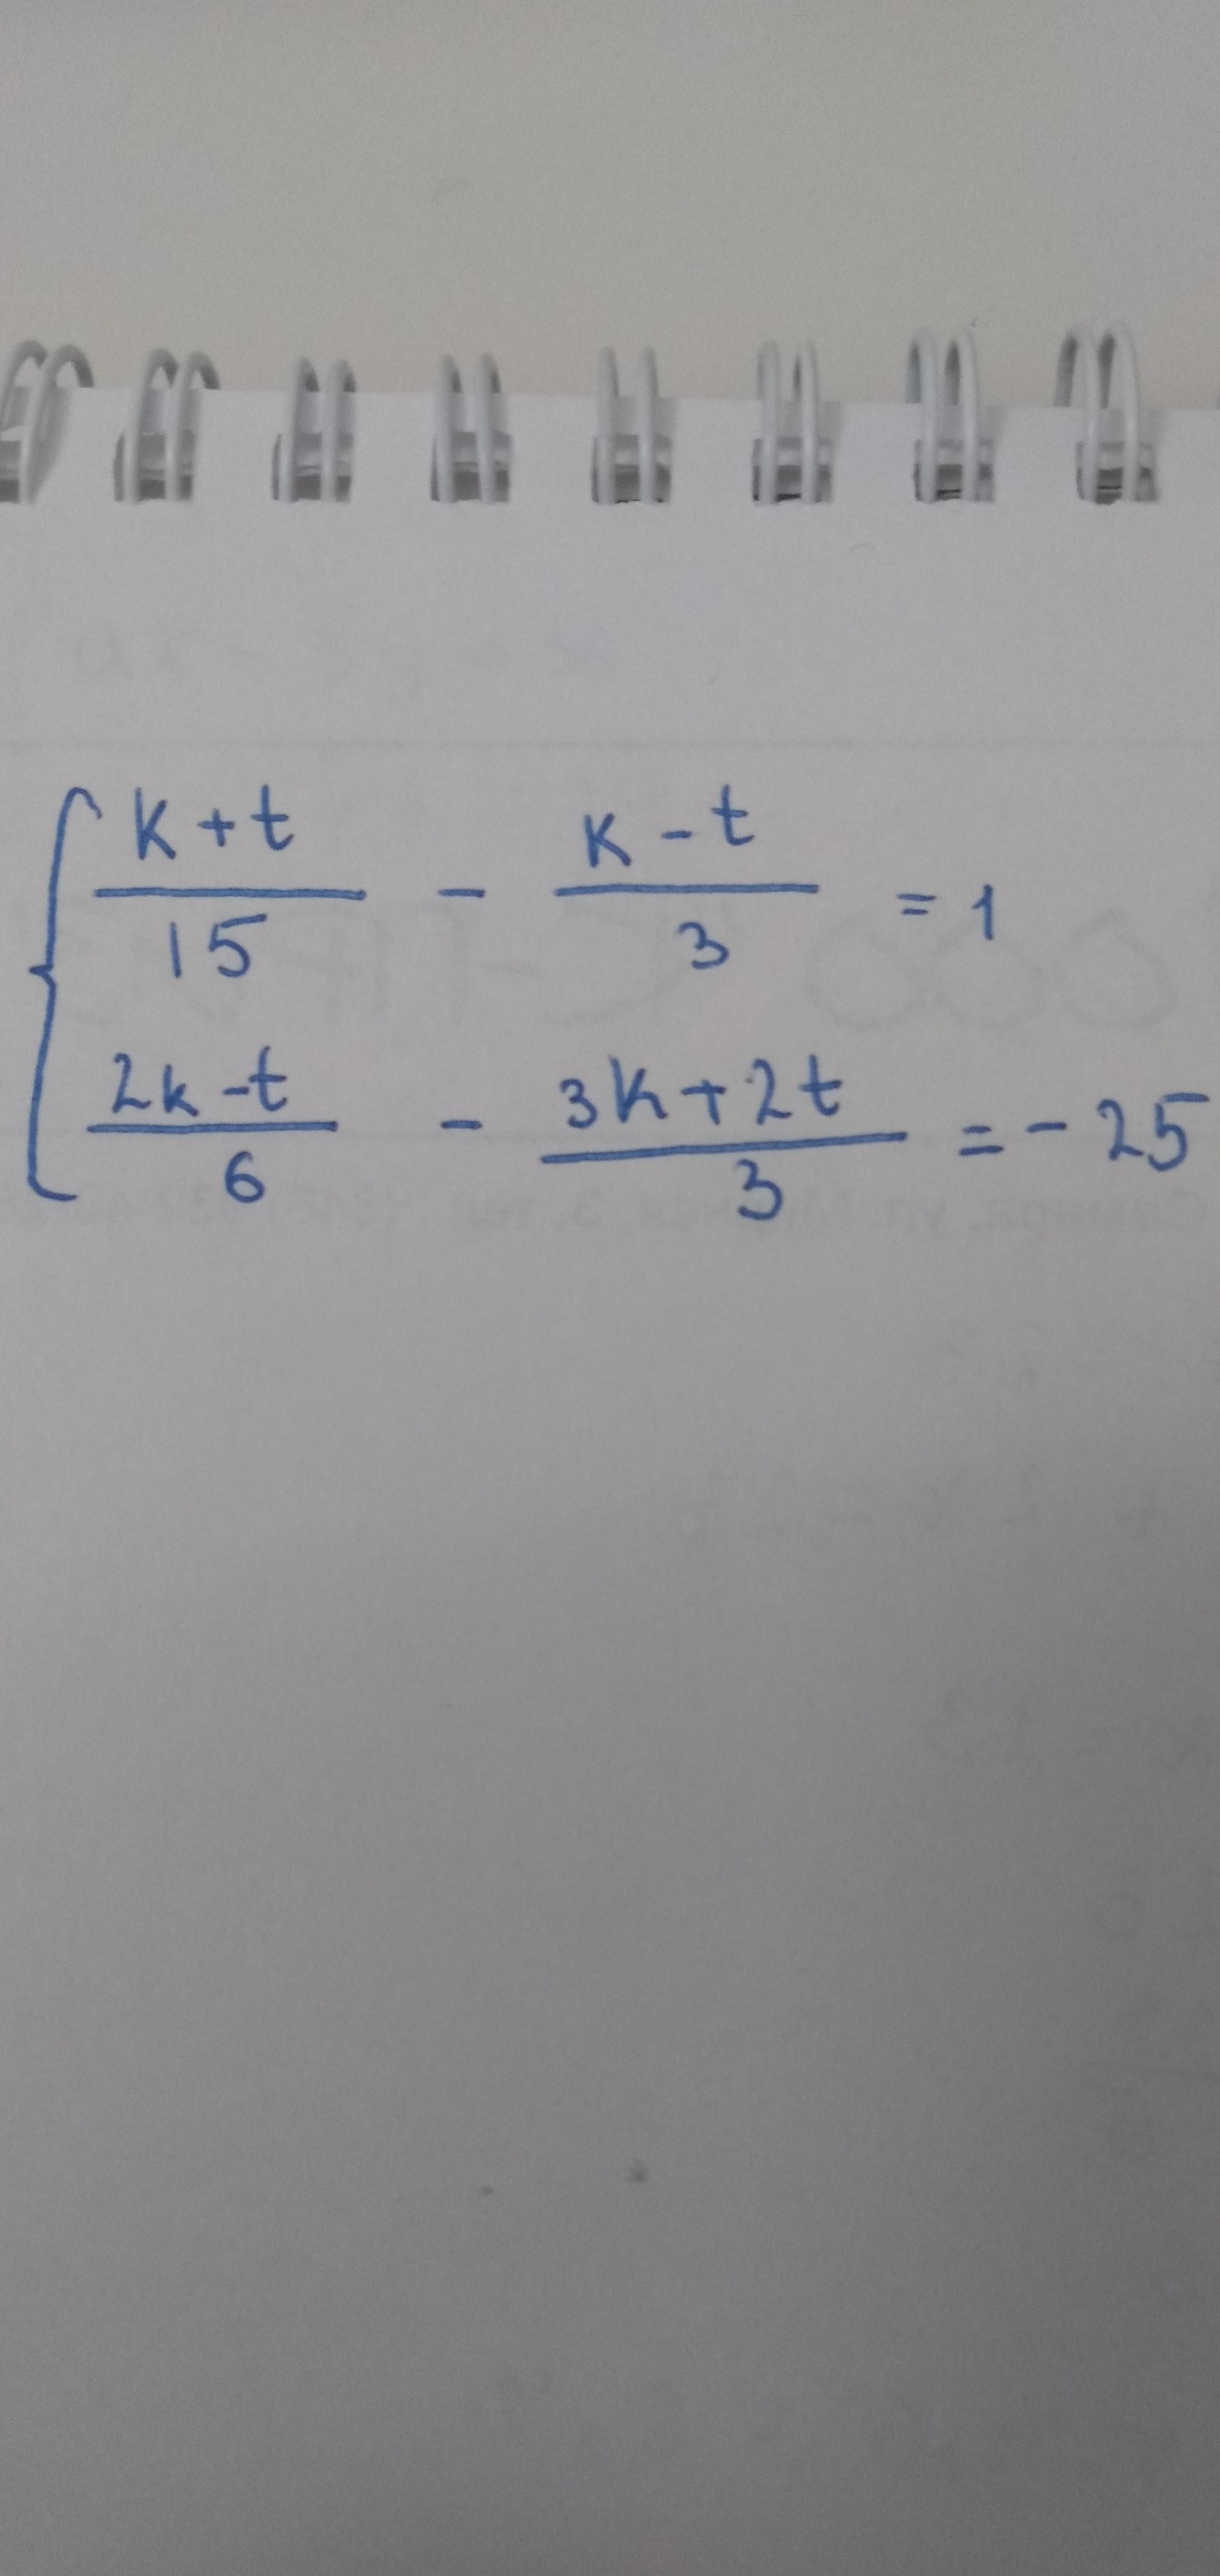 { (k+t)/15 - (k-t)/3 = 1
(2k-t)/6 - (3k+2t)/3 = -25